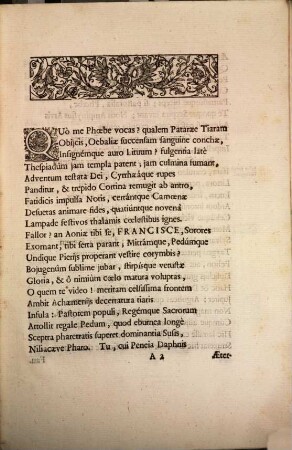 QUò me Phœbe vocas? qualem Pataræ Tiaram
Obijcis, Oebaliæ succensam sanguine conchæ,
Insignémque auro Lituum? fulgentia latè
Thespiadûm jam templa patent, jam culmina fumant,
Adventum testata Dei, Cyrrhæáque rupes
Panditur, & trepido Cortina remugit ab antro,
Fatidicis impulsa Notis, certántque Camœnæ
Desuetas animare fides, quatiúntque novenâ
Lampade festivos thalamis cœlestibus ignes.
Fallor? an Aoniæ tibi se, FRANCISCE, Sorores
Exornant, tibi serta parant; Mitrámque, Pedúmque
Undique Pierijs properant vestire corymbis?
Bojugenûm sublime jubar, stirpísque verustæ
Gloria, & ô nimiùm cœlo matura voluptas,
O quem te video! meritam celsissima frontem
Ambit Achæmenijs decernatura tiaris
Insula: Pastorem populi, Regémque Sacrorum
Attollit regale Pedum, quod eburnea longè
Sceptra pharetratis superet dominantia Susis,
Niliacæve Pharo. Tu, cui Peneia Daphnis
A 2 Æter-